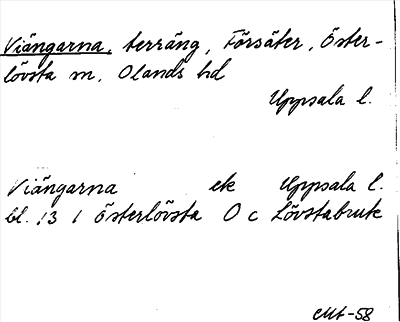 Viängarna, terräng, Försäter, Öster-
lövsta sn, Olands hd
Uppsala l.
Viängarna ek Uppsala l.
bl. 13 1 Österlövsta O c Lövstabruk
-58